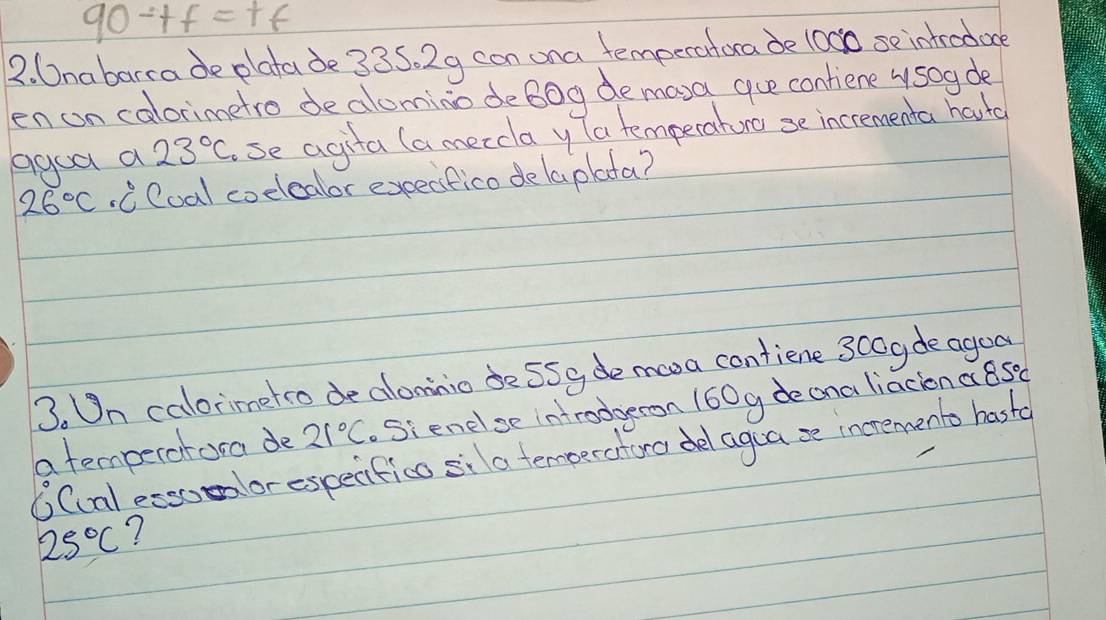 90-tf=tf
2. Una barra de plata de 335.2g con una temperatura de 100° se introduce
en un calorimetro de alominio de 60g de masa que contiene 450g de
agua a 23°C. se agita la mezcla y la temperatura se incrementa hasta
26°C. ¿Cual eselcalor expecifico de la plata?
3. Un calorimetro de alominio de 55g de masa contiene 300g de agua
a temperatura de 21°C. Si en el se introdujeron 160g de una liacion a 85°C
¿Cual essucalor especifico si la temperatura del agua se incremento hasta
25°C?